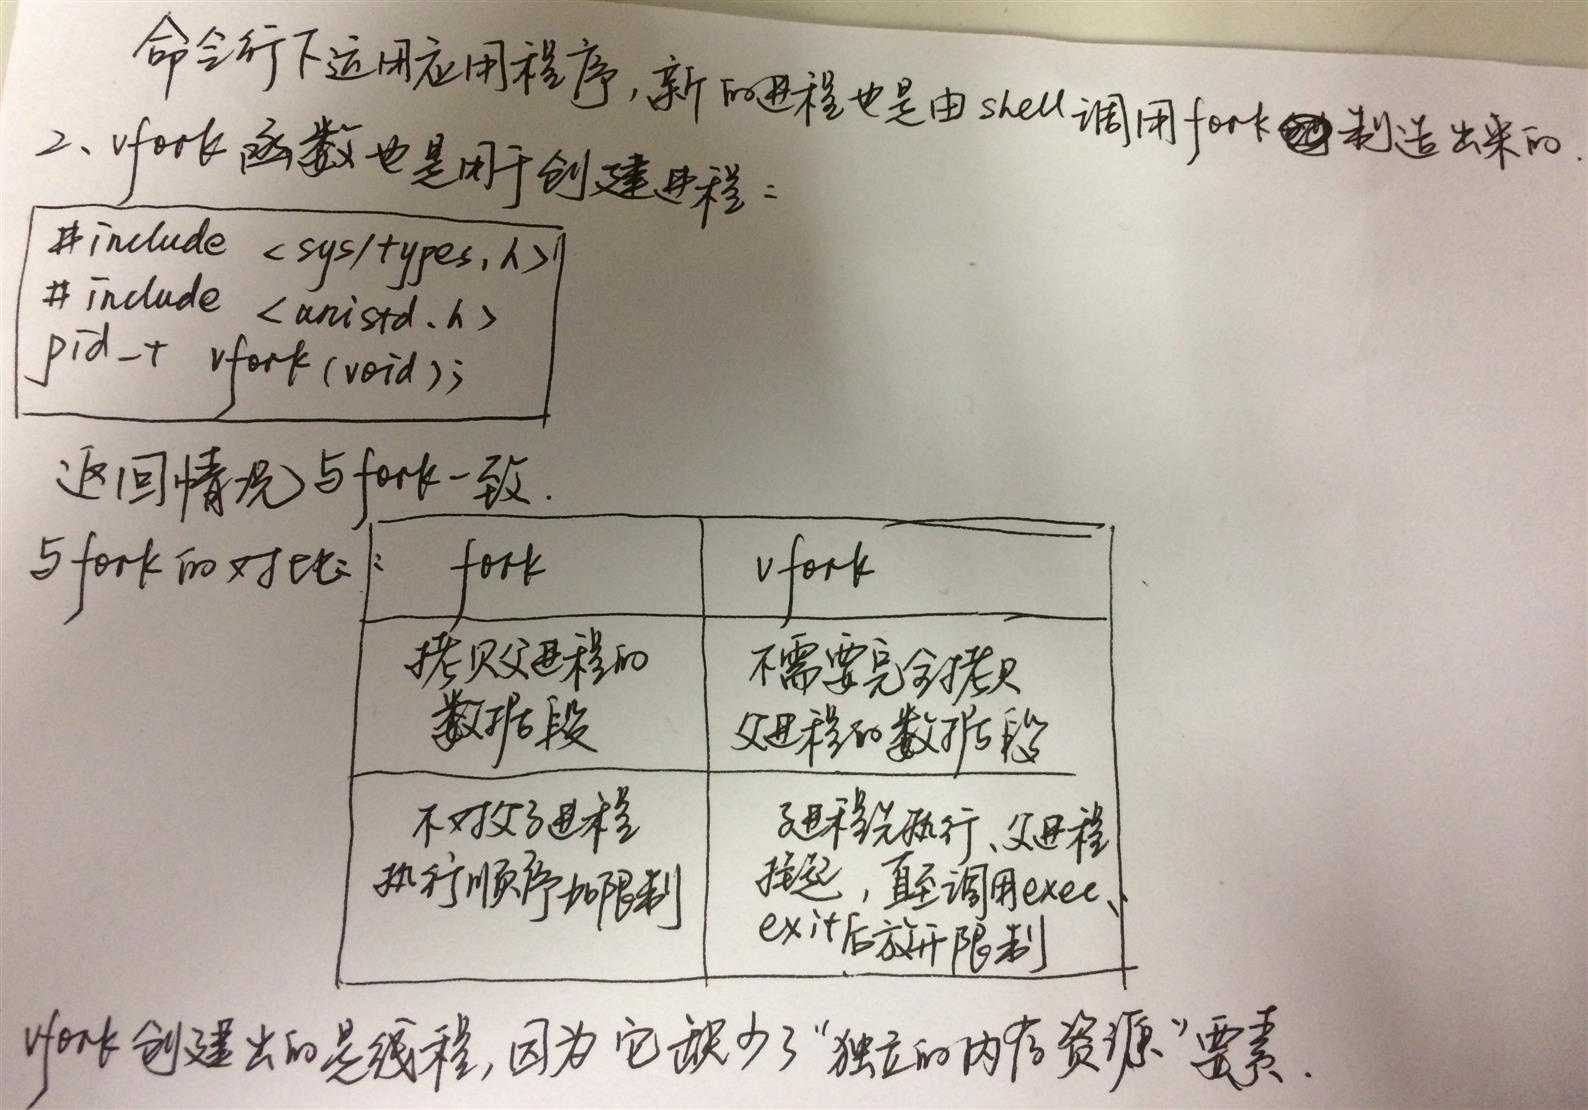 命令行下运用应用程序,新的进程也是由shell调用fork制造出来的.
2、vfork函数也是用于创建进程:
#include <sys/types.h>
#include <unistd.h>
pid_t vfork(void);
返回情况与fork一致.
与fork的对比:
fork vfork
拷贝父进程的 不需要完全拷贝
数据段 父进程的数据段
不对父子进程 子进程先执行、父进程
执行顺序加限制 挂起,直至调用exec、
exit后放开限制
vfork创建出的是线程,因为它缺少了“独立的内存资源”要素.